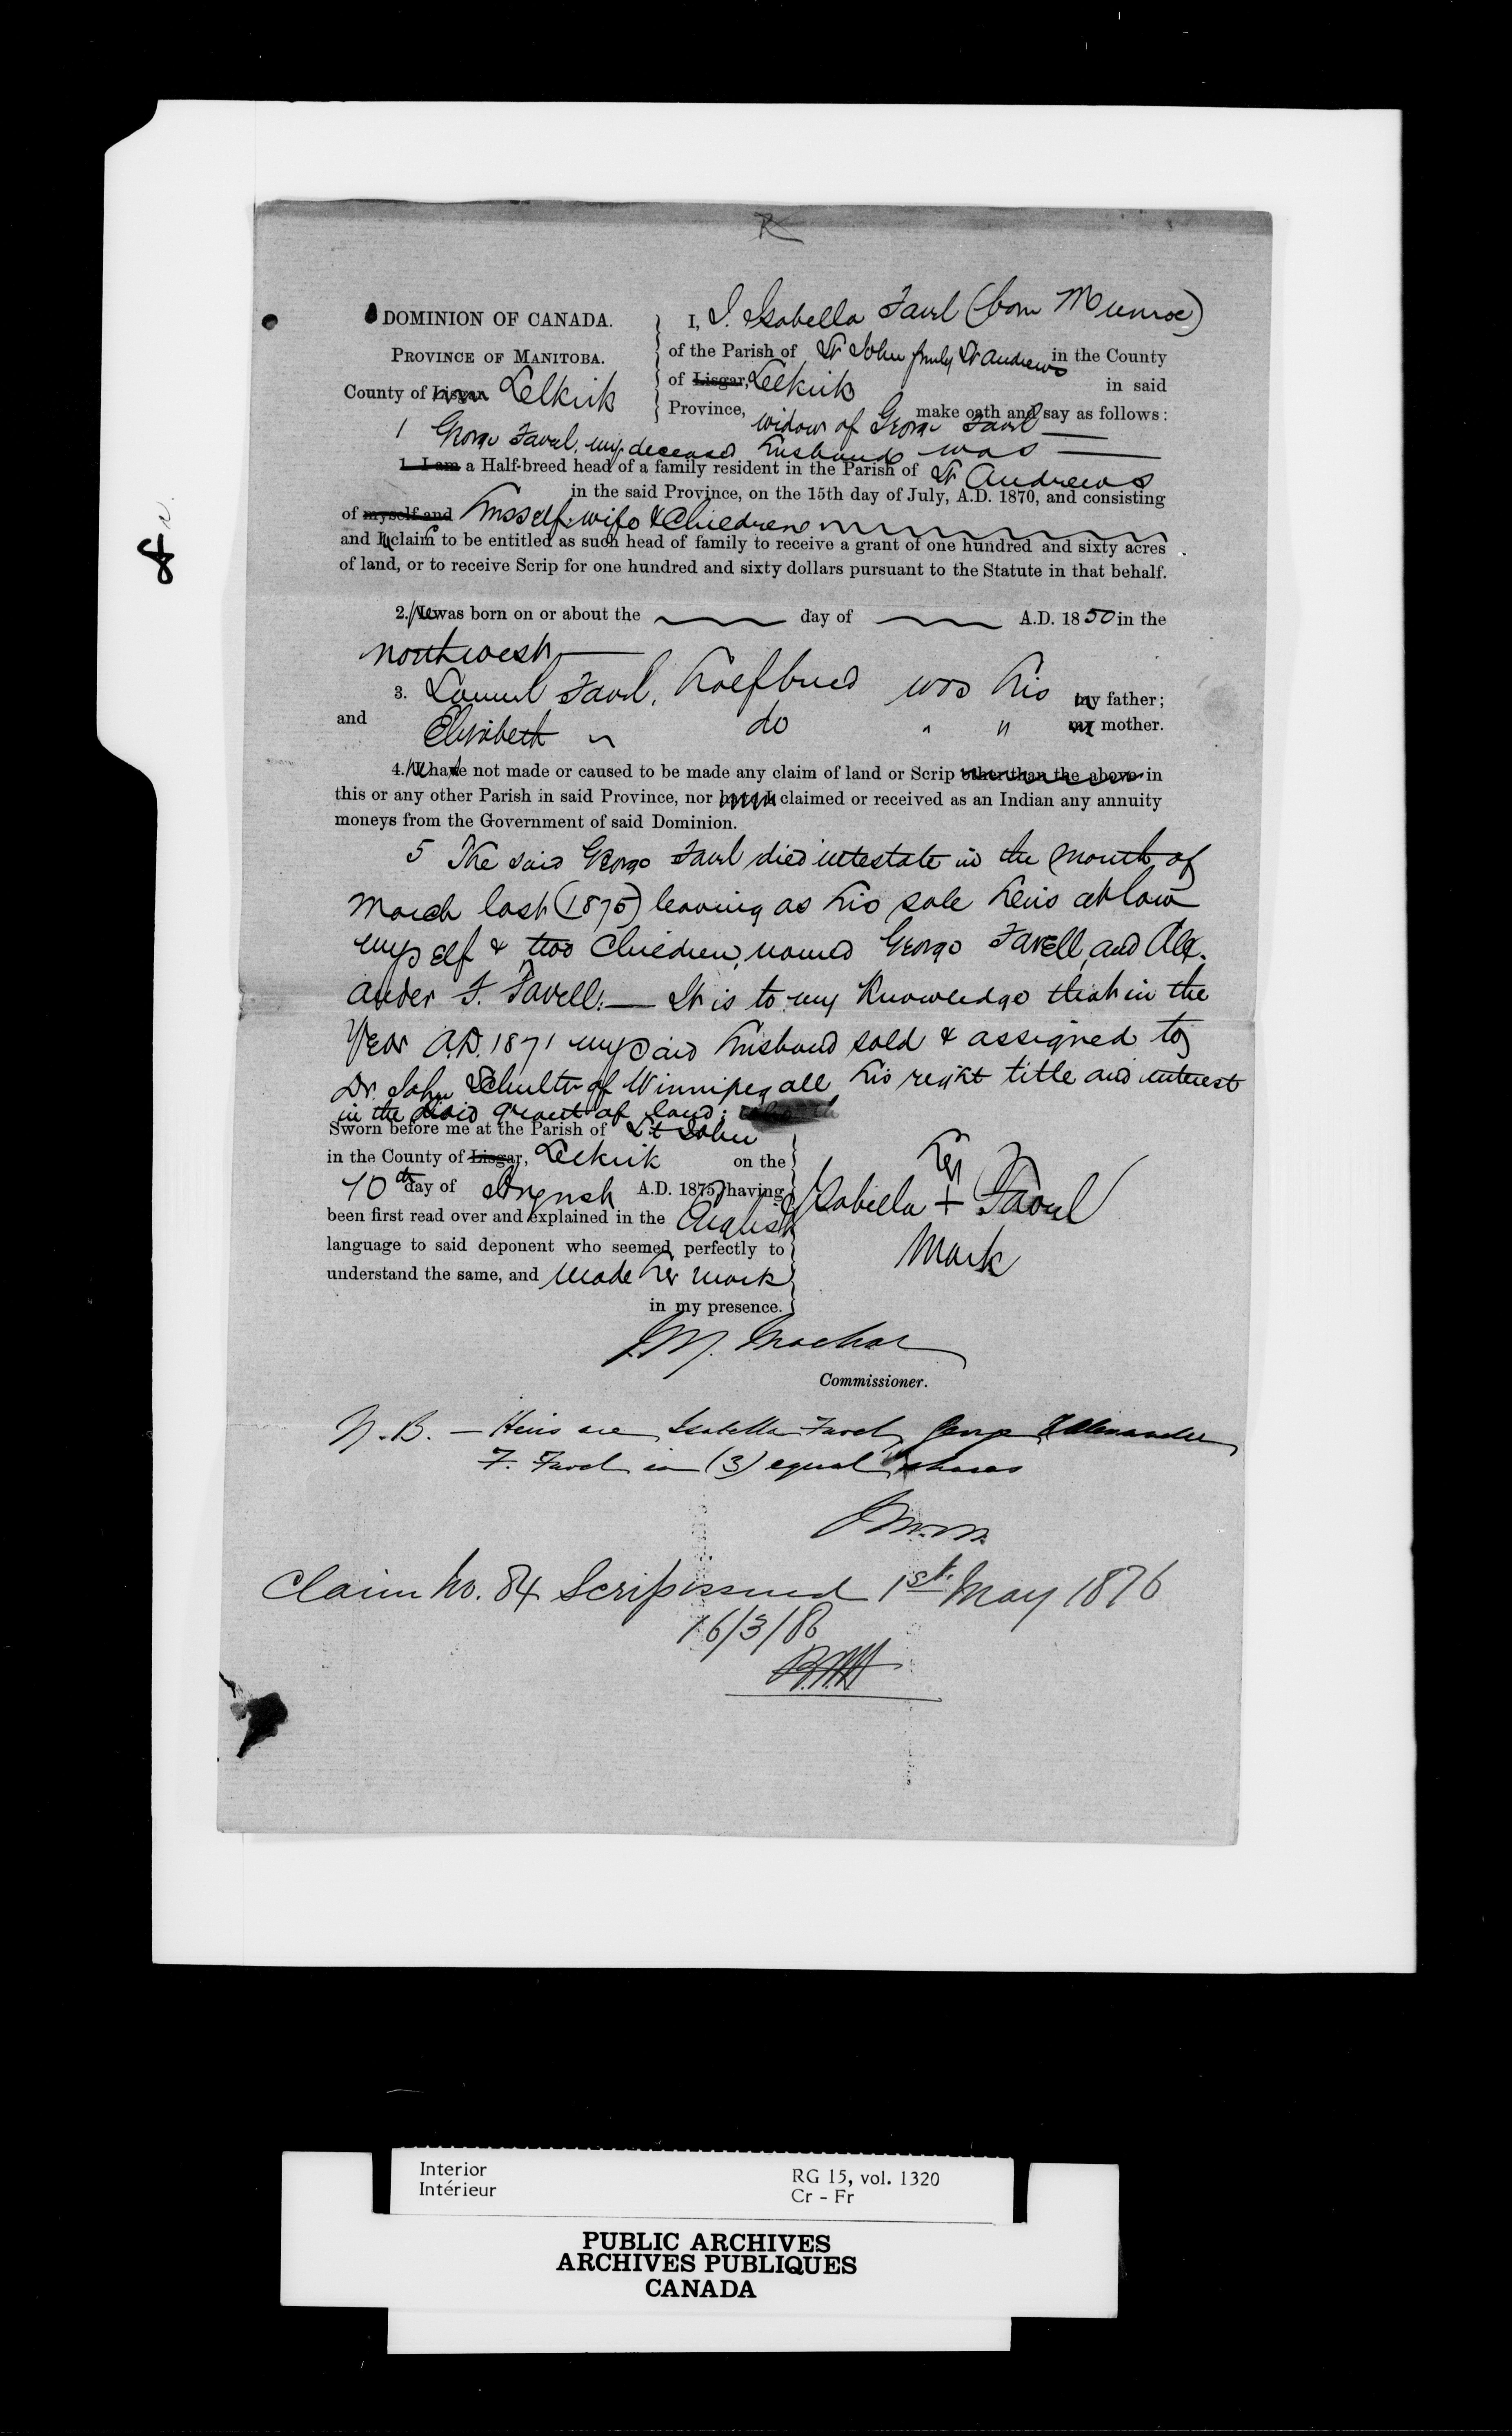 DOMINION OF CANADA.
PROVINCE OF MANITOBA.
County of Lisgar Selkirk
I, I. Isabella Favel (born Munroe)
of the Parish of St John formerly St Andrews in the County
of Lisgar, Selkirk in said
Province, widow of George Favel make oath and say as follows:
1 George Favel, my deceased husband was
1. I am a Half-breed head of a family resident in the Parish of St Andrews
in the said Province, on the 15th day of July, A.D. 1870, and consisting
of myself and himself wife & Children
and I claim to be entitled as such head of family to receive a grant of one hundred and sixty acres
of land, or to receive Scrip for one hundred and sixty dollars pursuant to the Statute in that behalf.
2. He was born on or about the day of A.D. 1850 in the
northwest
3. Samuel Favel, halfbreed was his my father;
and Elizabeth " do " " my mother.
4. He had not made or caused to be made any claim of land or Scrip other than the above in
this or any other Parish in said Province, nor have I claimed or received as an Indian any annuity
moneys from the Government of said Dominion.
5 The said George Favel died intestate in the month of
March last (1875) leaving as his sole heirs at law
myself & two Children, named George Favell, and Alex-
ander F. Favell. — It is to my Knowledge that in the
Year A.D. 1871 my said husband sold & assigned to
Dr. John Schultz of Winnipeg all his right title and interest
in the said grant of land:
Sworn before me at the Parish of St John
in the County of Lisgar, Selkirk on the
10th day of August A.D. 1875, having
been first read over and explained in the English
language to said deponent who seemed perfectly to
understand the same, and made her mark
in my presence.
her
Isabella + Favel
Mark
J. M. Machar
Commissioner.
N.B. — Heirs are Isabella Favel, George & Alexander
F. Favel in (3) equal shares
J.M.M.
Claim No. 84 Scrip issued 1st May 1876
16/3/86
Interior
Intérieur
RG 15, vol. 1320
Cr - Fr
PUBLIC ARCHIVES
ARCHIVES PUBLIQUES
CANADA